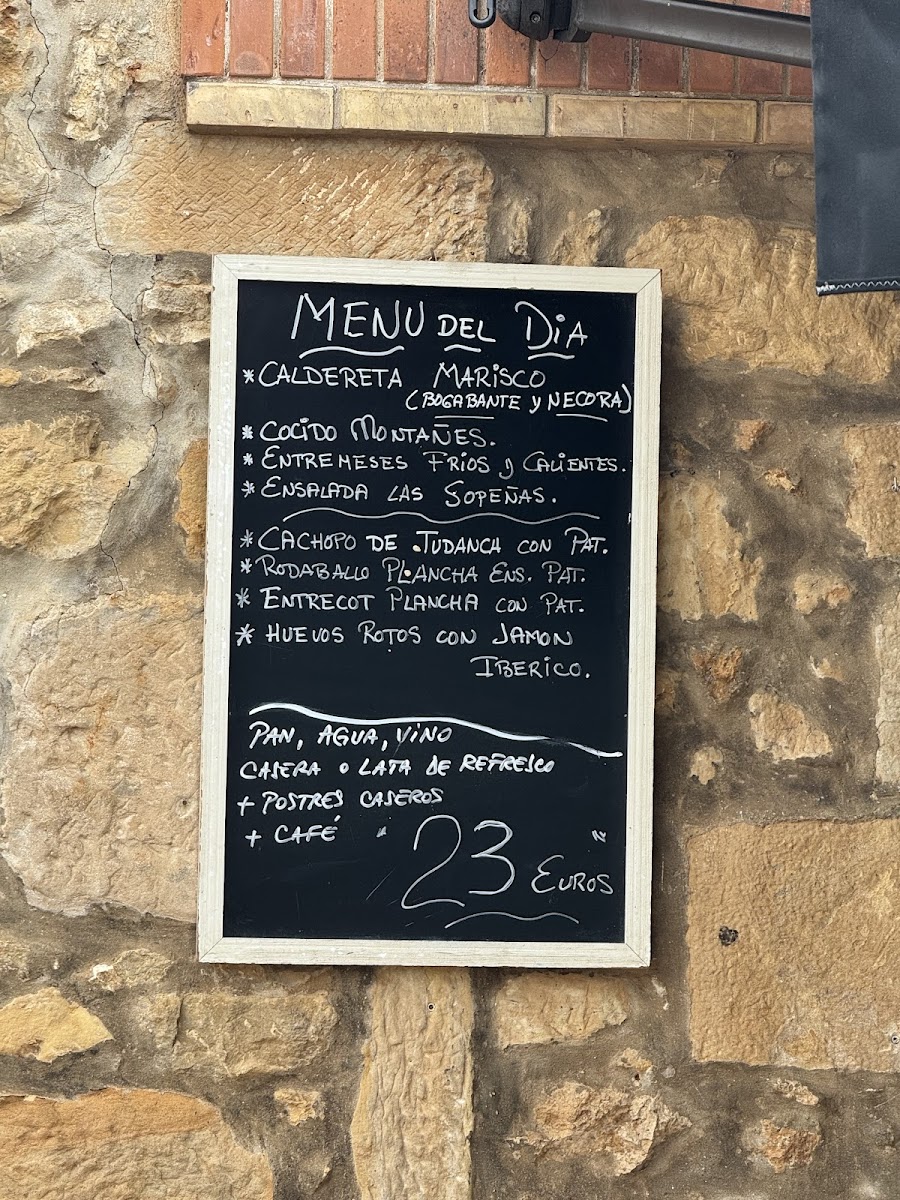 MENU DEL DiA
*CALDERETA MARISCO
(BOGABANTE y NECORA)
*COCIDO MONTAÑES.
*ENTREMESES FRIOS y CALIENTES.
*ENSALADA LAS SOPEÑAS.
*CACHOPO DE TUDANCA CON PAT.
*RODABALLO PLANCHA ENS. PAT.
*ENTRECOT PLANCHA CON PAT.
*HUEVOS ROTOS CON JAMON
IBERICO.
PAN, AGUA, VINO
CASERA O LATA DE REFRESCO
+ POSTRES CASEROS
+ CAFÉ " 23 " EUROS